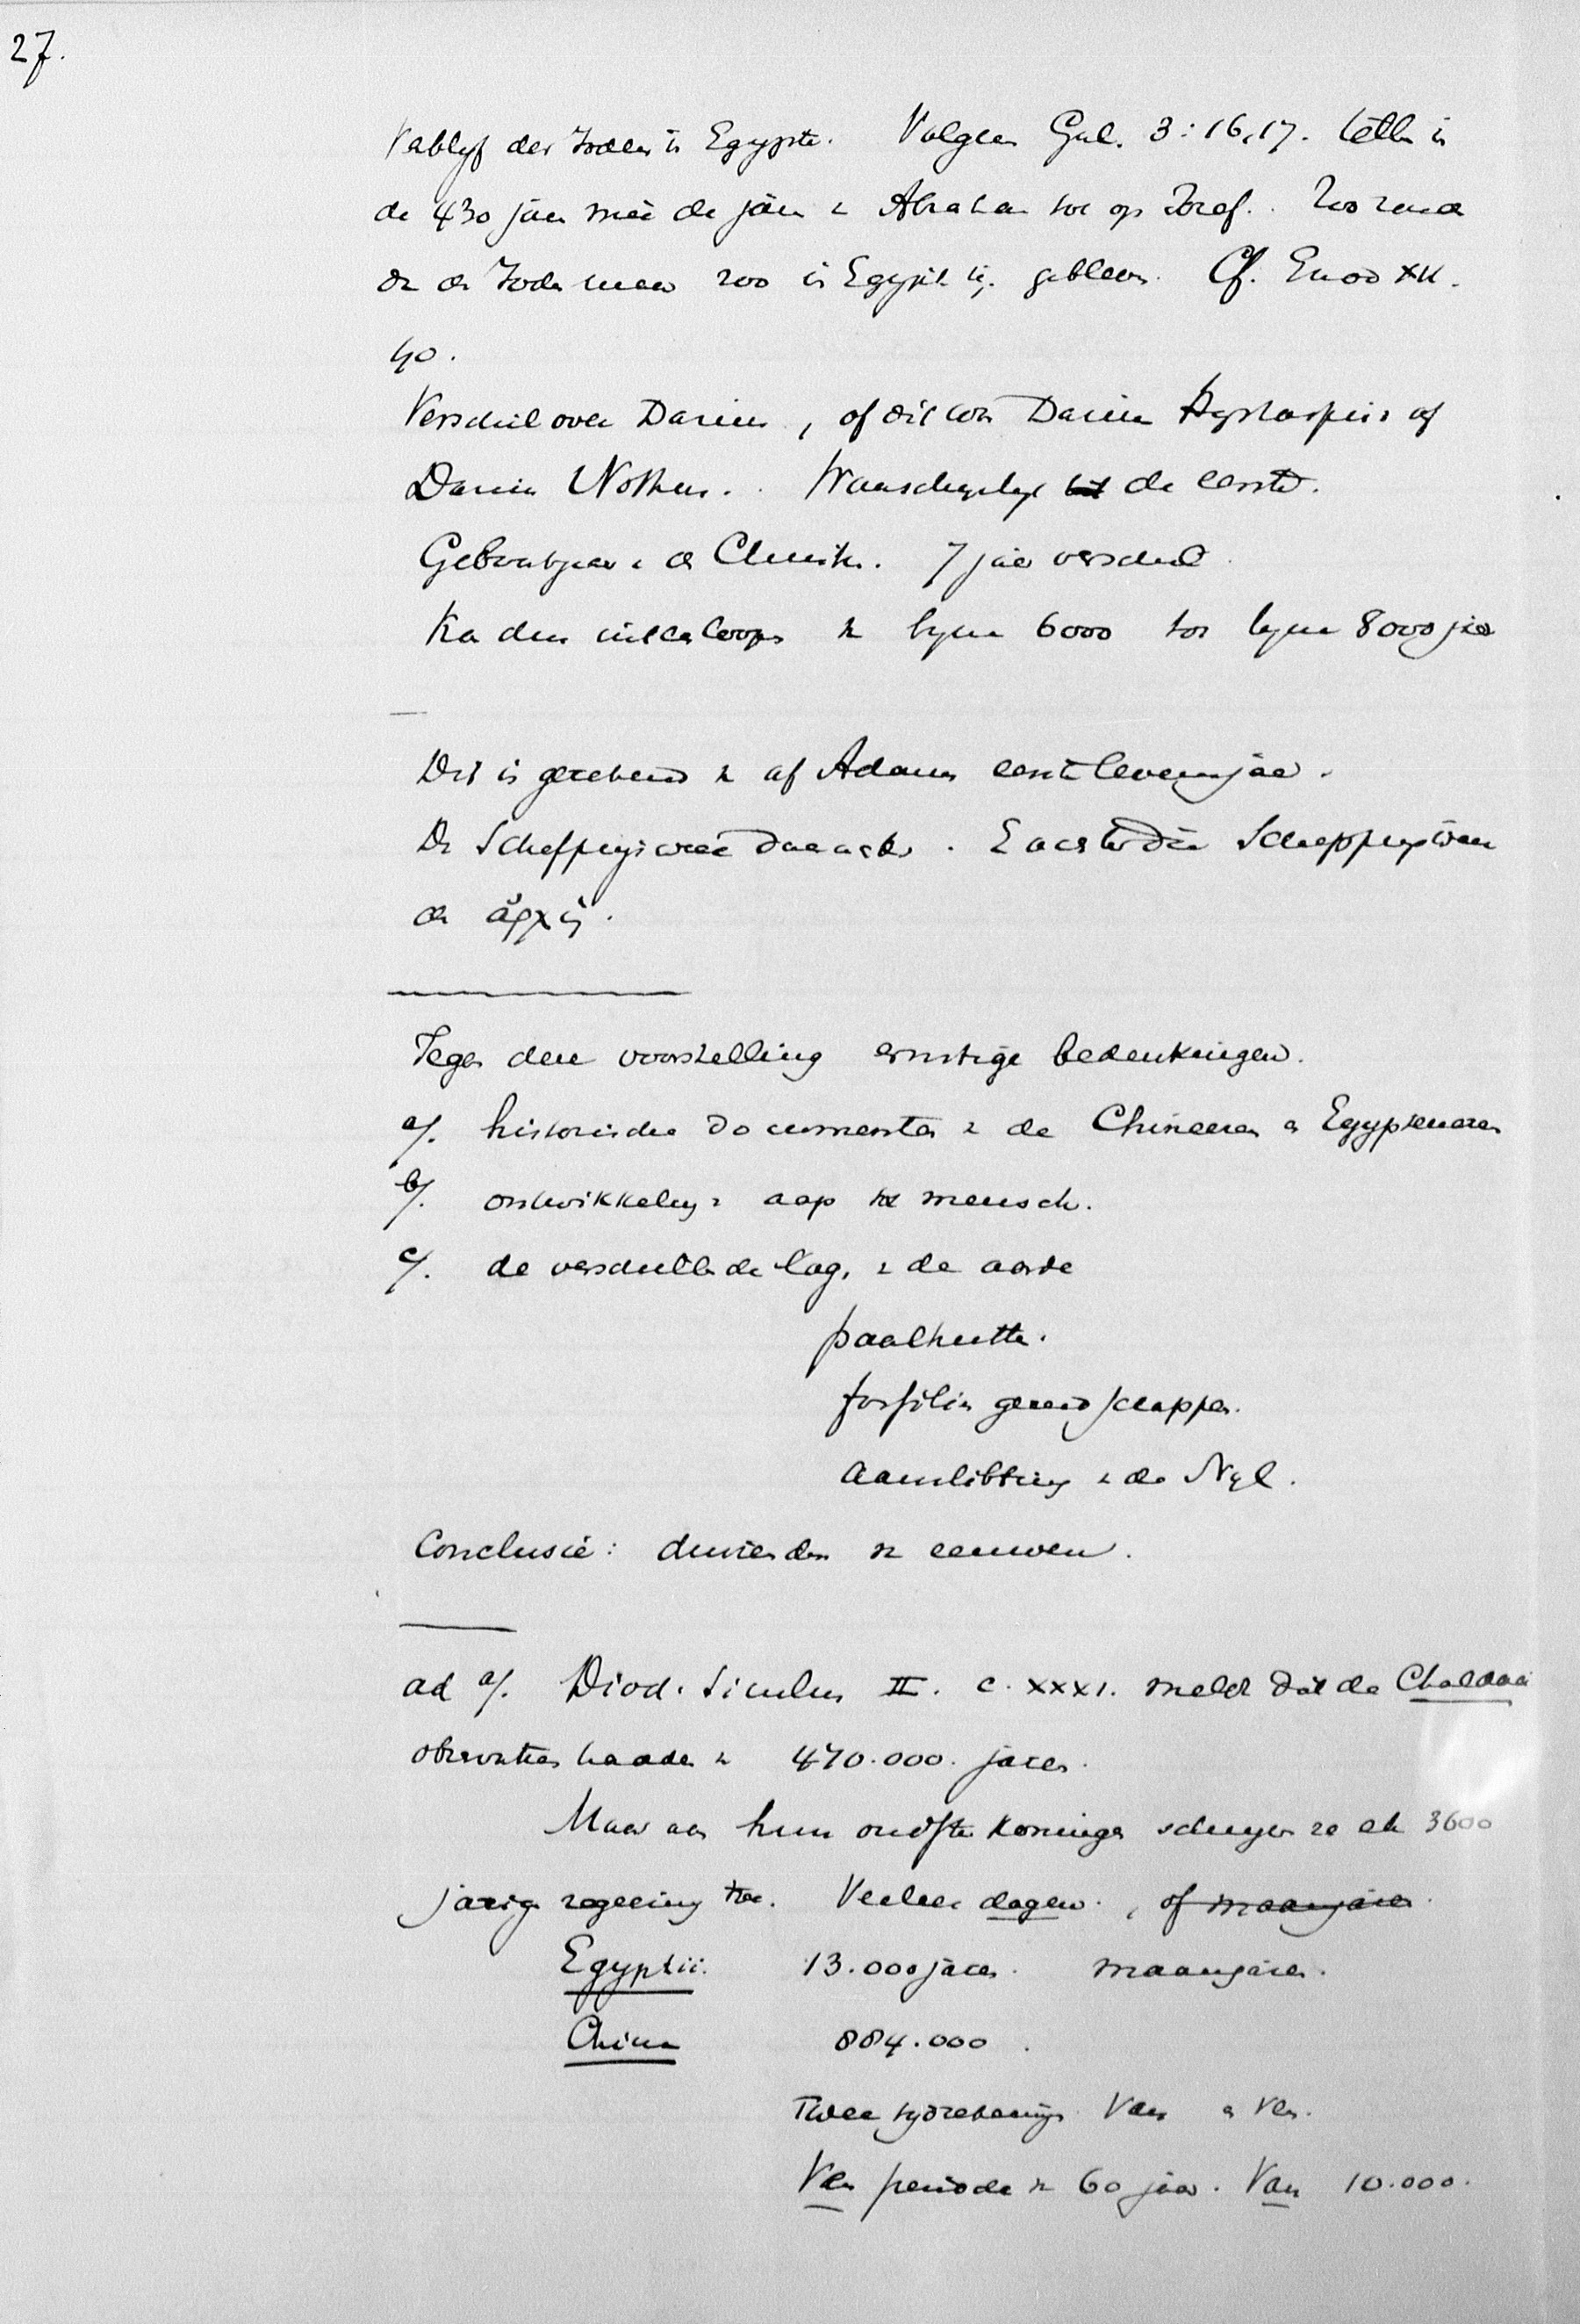 27.
Verblyf der Joden in Egypte. Volgens Gal. 3:16,17. tellen in
de 430 jaren mee de jaren v Abraham tot op Jozef. Zoo zoude
dan de Joden maar 200 in Egypte zijn gebleven. Cf. Exod XII.
40.
Verschil over Darius, of dit was Darius Hystaspis of
Darius Nothus. Waarschynlyk de eerste.
Geboortejaar v de Christus. 7 jaar verschil.
Ka den uiteenloopen van byna 6000 tot byna 8000 jaar
Dit is gerekend van af Adams eerste levensjaar.
De Scheppingsweek daarachter. Eer die Scheppingsweek
de ἀρχή.
Tegen deze voorstelling ernstige bedenkingen.
a/. historische documenten v de Chineezen en Egyptenaren
b/. ontwikkeling v aap tot mensch.
c/. de verschillende lagen v de aarde
paalhutten.
fossilien gereedschappen.
Aanslibbing v de Nyl.
Conclusie: duizenden van eeuwen.
ad a/. Diod. Siculus II. c. XXXI. meldt dat de Chaldaei
observaties hadden v 470.000. jaren.
Maar aan hun oudste Koningen schryven ze ook 3600
jarige regeering toe. Veeleer dagen. , of maanjaren.
Egyptii. 13.000 jaren. maanjaren.
China 884.000.
Twee tydrekeningen Van en Ven.
Ven periode van 60 jaar. Van 10.000.